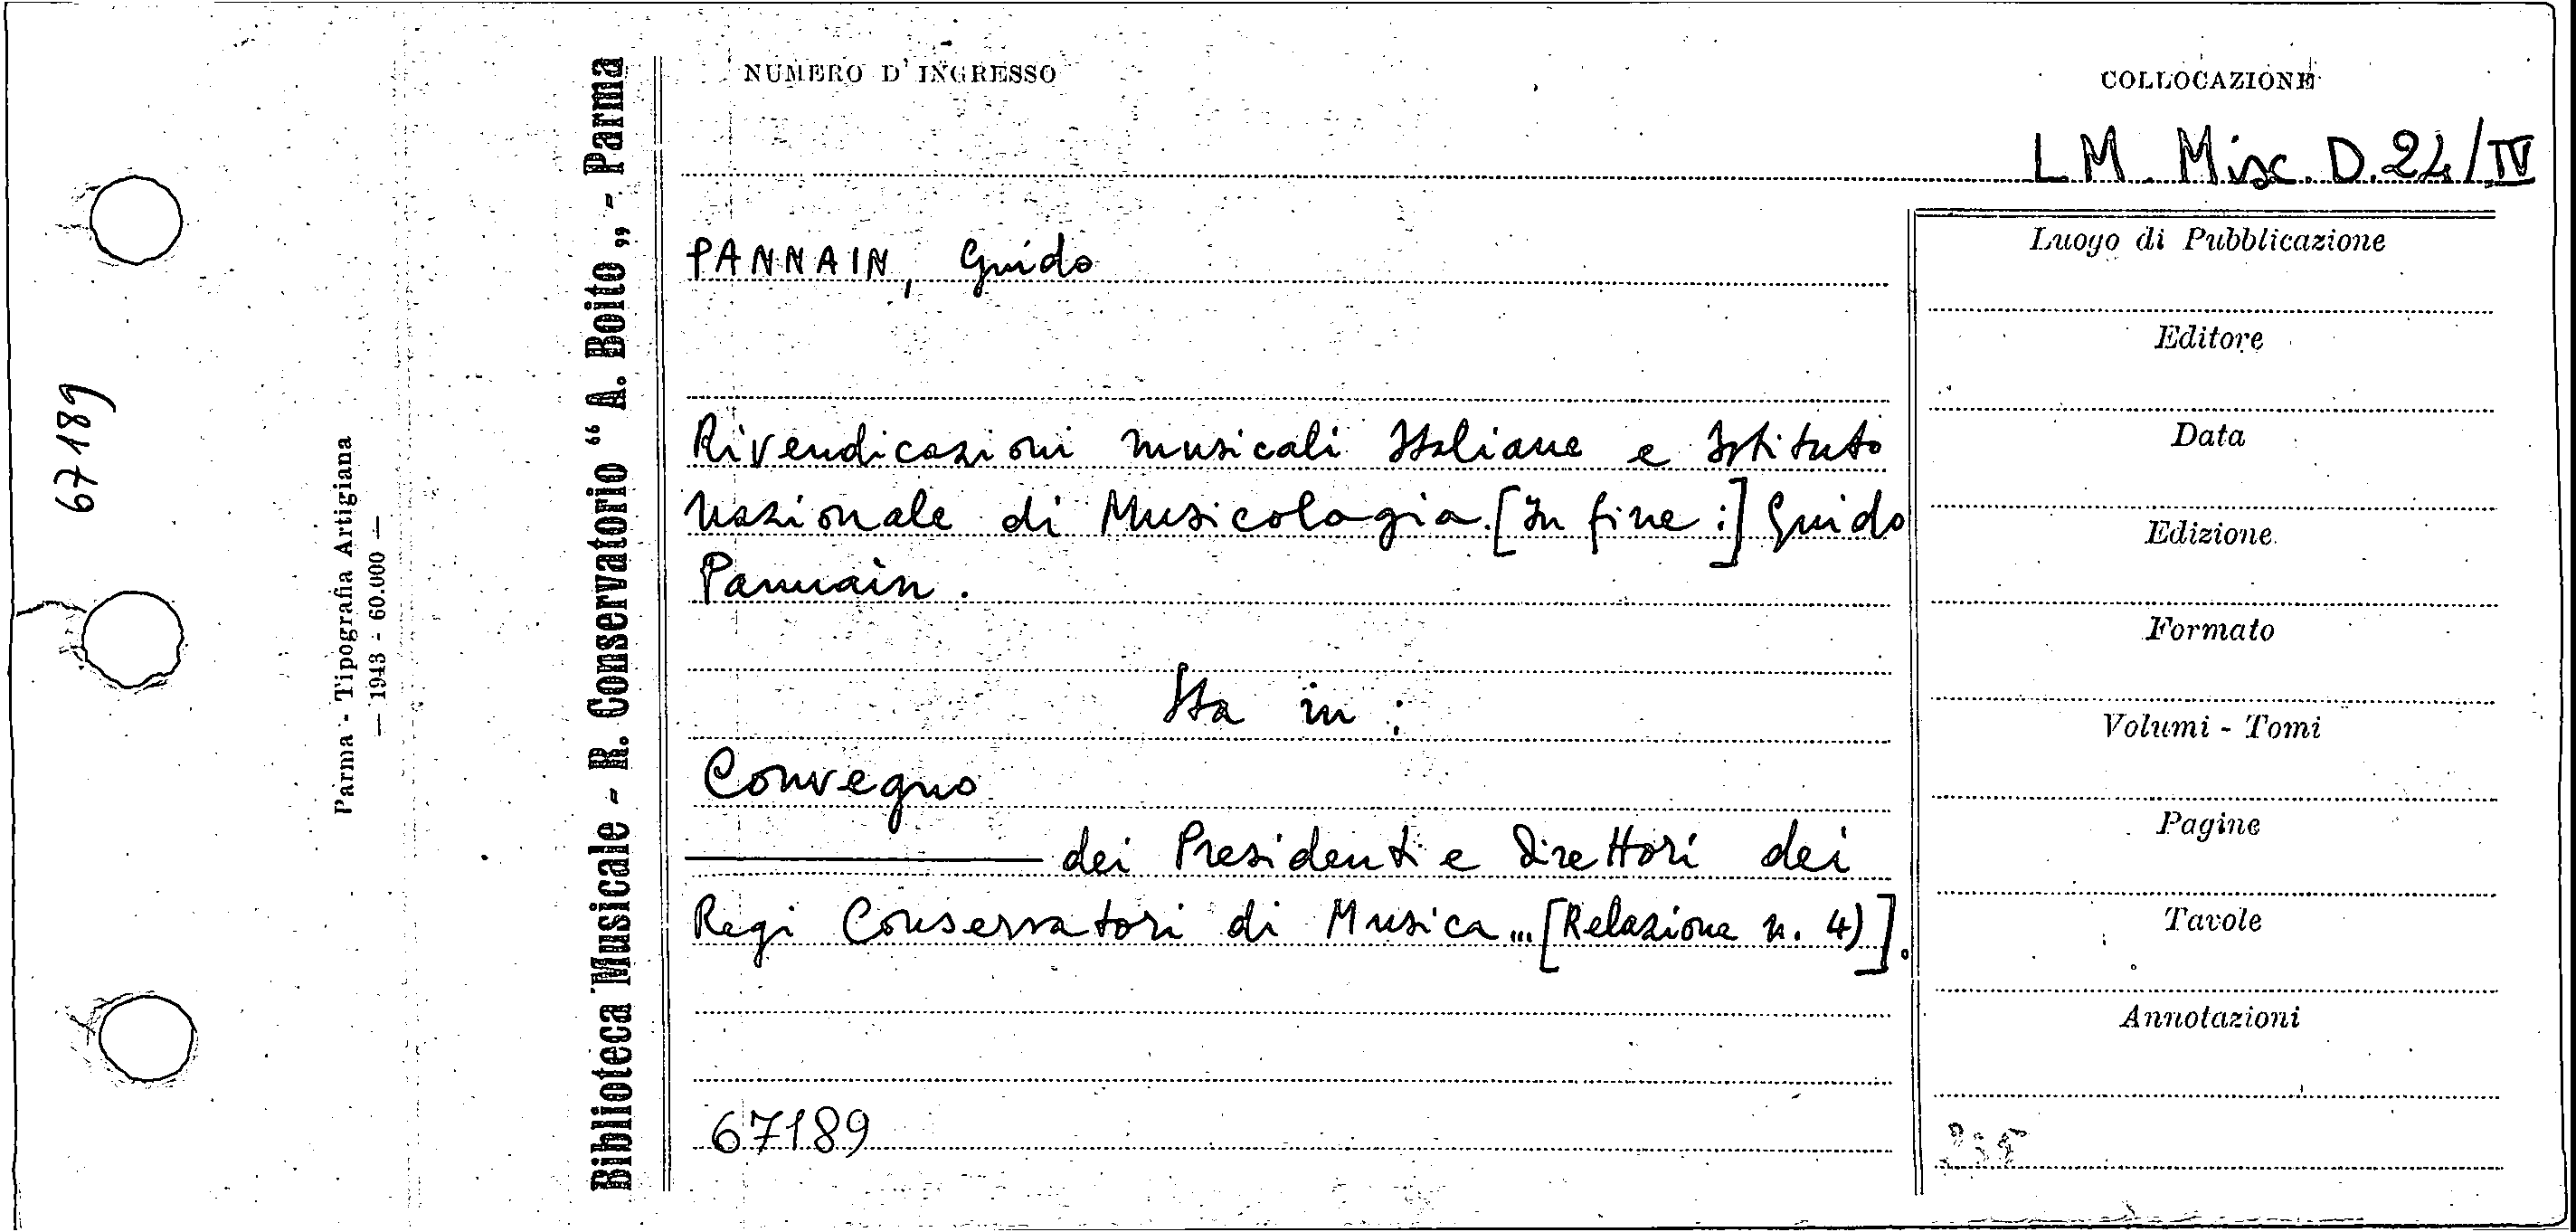 NUMERO D'INGRESSO
COLLOCAZIONE
LM. Misc. D.24/IV
PANNAIN, Guido
Rivendicazioni musicali Italiane e Istituto
Nazionale di Musicologia. [In fine:] Guido
Pannain.
Sta in:
Convegno
dei Presidenti e Direttori dei
Regi Conservatori di Musica... [Relazione n. 4)].
67189
Luogo di Pubblicazione
Editore
Data
Edizione
Formato
Volumi - Tomi
Pagine
Tavole
Annotazioni
Biblioteca Musicale - R. Conservatorio “ A. Boito „ - Parma
Parma - Tipografia Artigiana
— 1943 - 60.000 —
67189